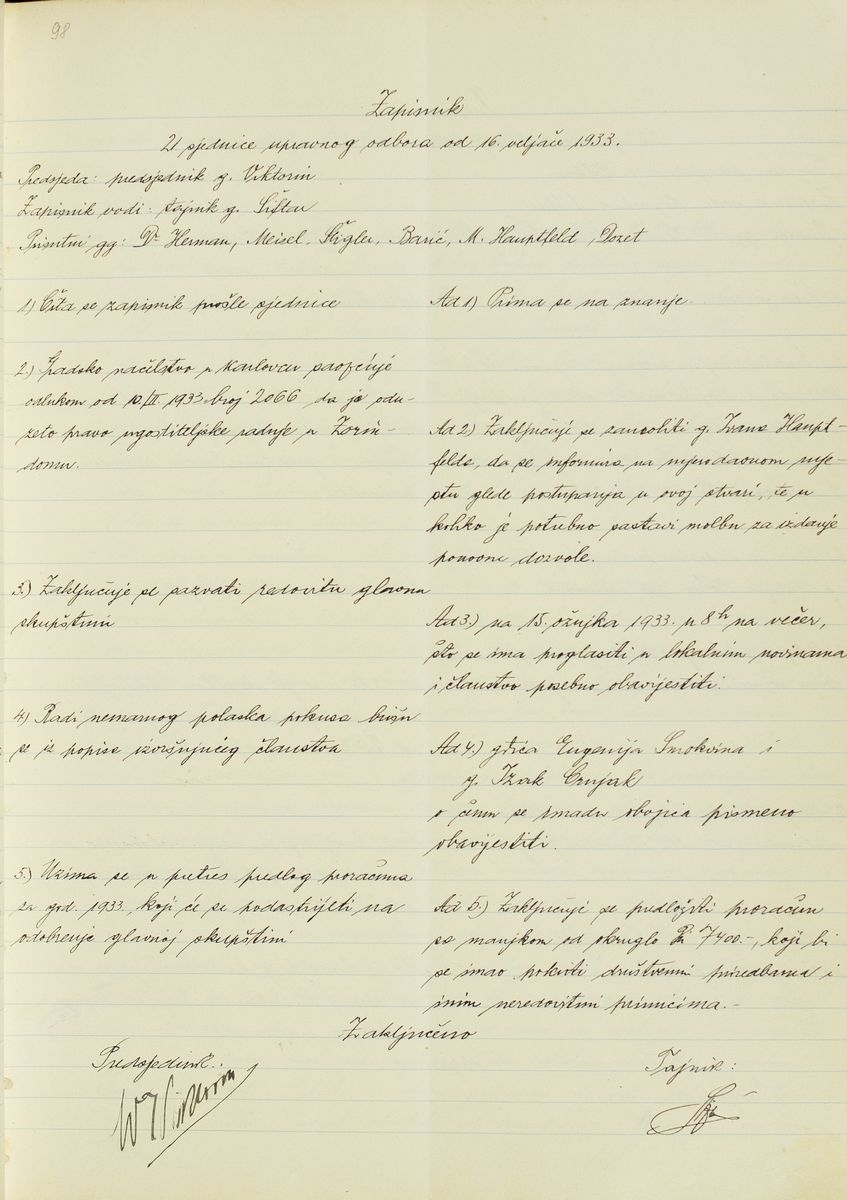 98
Zapisnik
21 sjednice upravnog odbora od 16. veljače 1933.
Predsjeda: predsjednik g. Viktorin
Zapisnik vodi: tajnik g. Šiftar
Prisutni gg: Dr Herman, Meisel, Štigler, Barić, M. Hauptfeld, Dozet
1) Čita se zapisnik prošle sjednice
Ad 1) Prima se na znanje.
2.) Gradsko načelstvo u Karlovcu saopćuje
odlukom od 10/II 1933 broj 2066 da je odu-
zeto pravo ugostiteljske radnje u Zorin-
domu.
Ad 2) Zaključuje se zamoliti g. Ivana Haupt-
felda, da se informira na mjerodavnom mje-
stu glede postupanja u ovoj stvari, te u
koliko je potrebno sastavi molbu za izdanje
ponovne dozvole.
3.) Zaključuje se sazvati redovitu glavnu
skupštinu
Ad 3.) na 15. ožujka 1933. u 8h na večer,
što se ima proglasiti u lokalnim novinama
i članstvo posebno obavijestiti.
4.) Radi nemarnog polaska pokusa brišu
se iz popisa izvršujućeg članstva
Ad 4.) gđica Eugenija Smokvina i
g. Izak Crnjak
o čem se imadu obojica pismeno
obavijestiti.
5.) Uzima se u pretres predlog proračuna
za god. 1933., koji će se podastrijeti na
odobrenje glavnoj skupštini
Ad 5.) Zaključuje se predložiti proračun
sa manjkom od okruglo Din 7400.-, koji bi
se imao pokriti društvenim priredbama i
inim neredovitim primicima.-
Zaključeno
Predsjednik:
Tajnik:
Viktorin